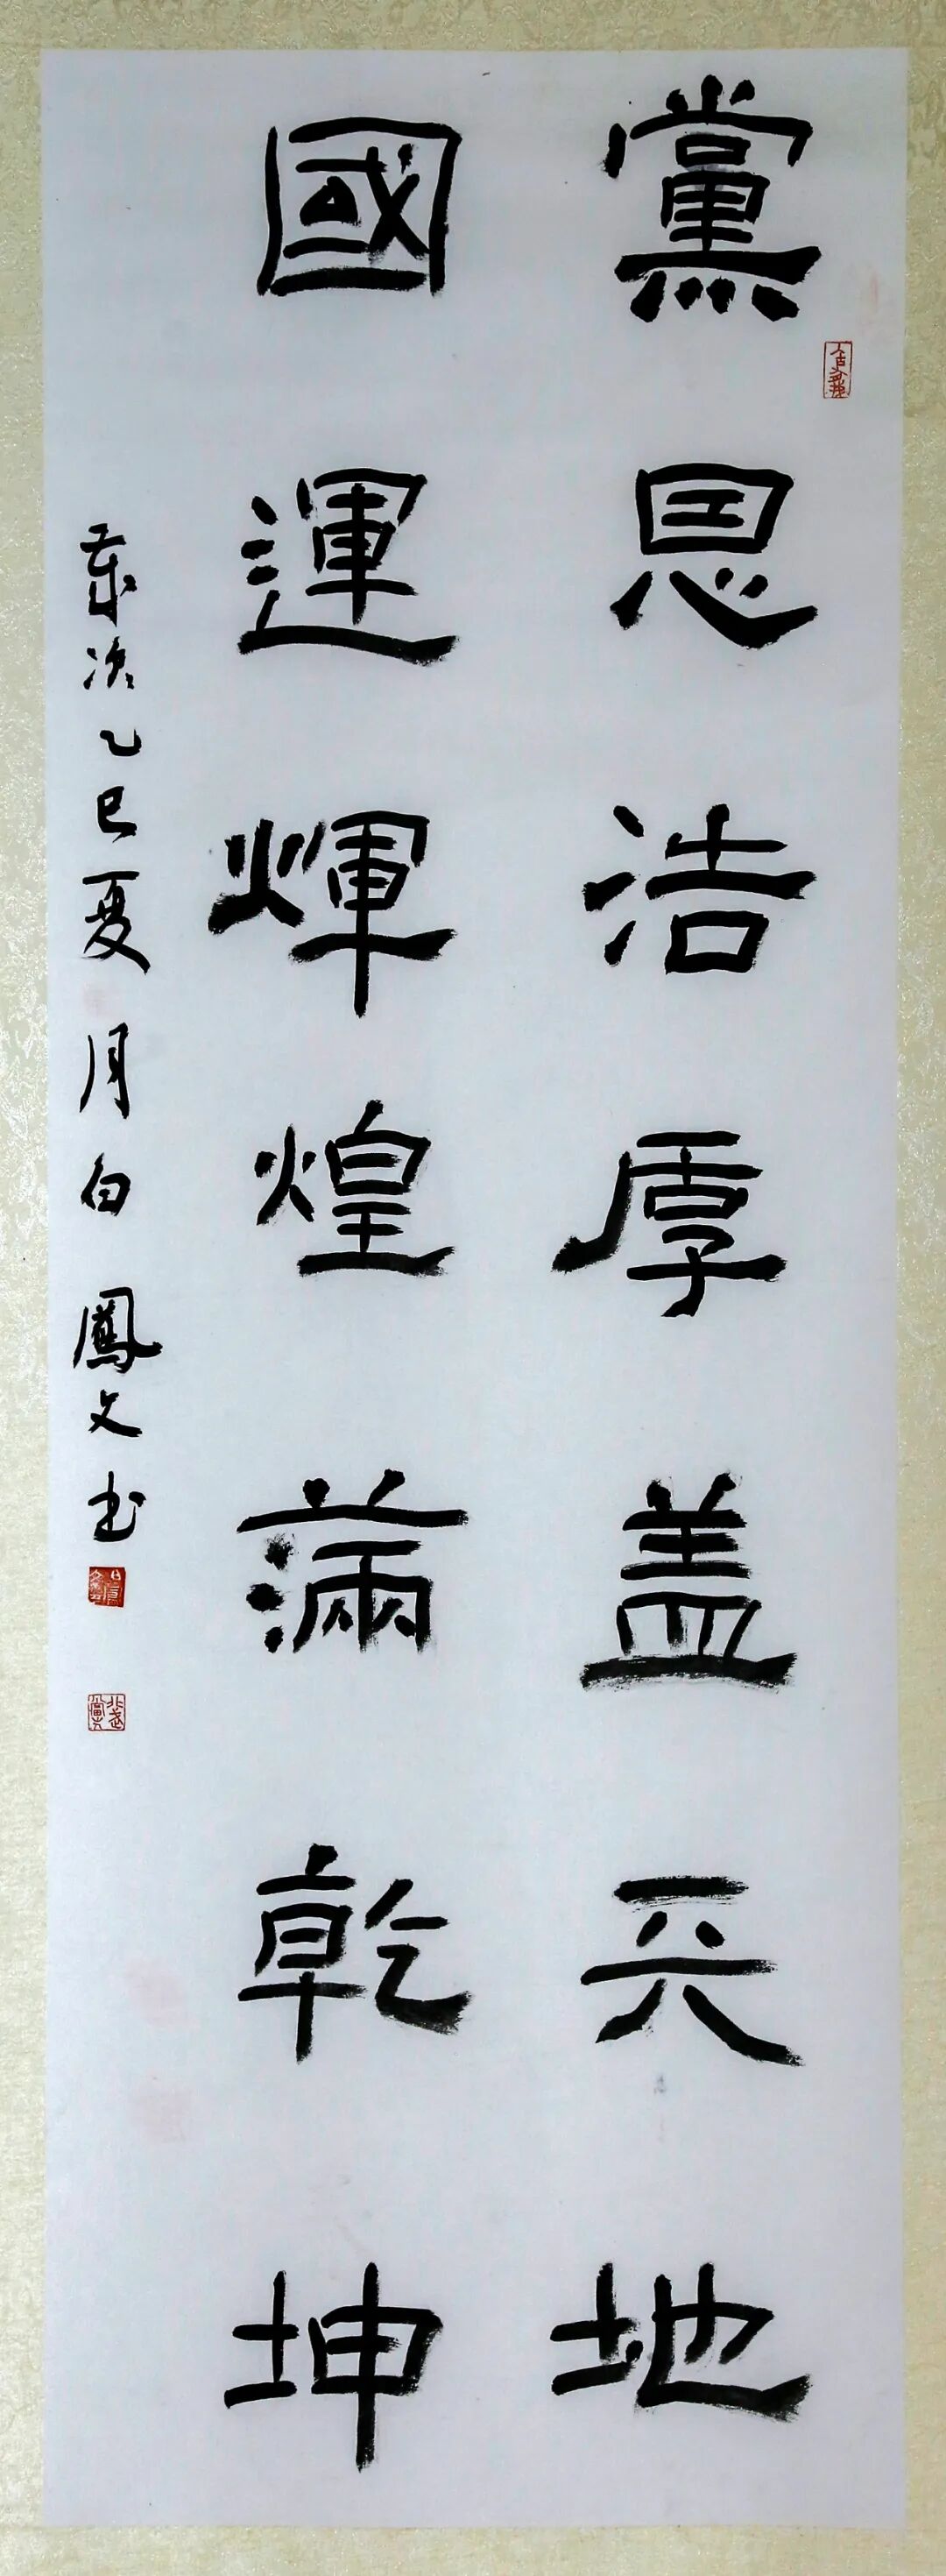 黨恩浩厚盖天地
國運輝煌滿乾坤
歲次乙巳夏月白鳳文书